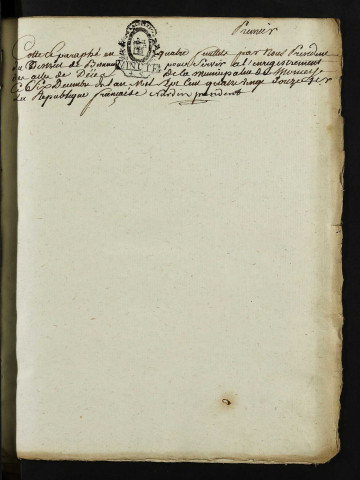 Premier
Cotté et paraphé en quatre feuillets par Nous President
du District de pour Servir a l'enregistrement
des actes de Décès de la municipalité de
Ce Six Decembre de l'an Mil Sept Cent quatre vingt Douze 1er
de la Republique française president